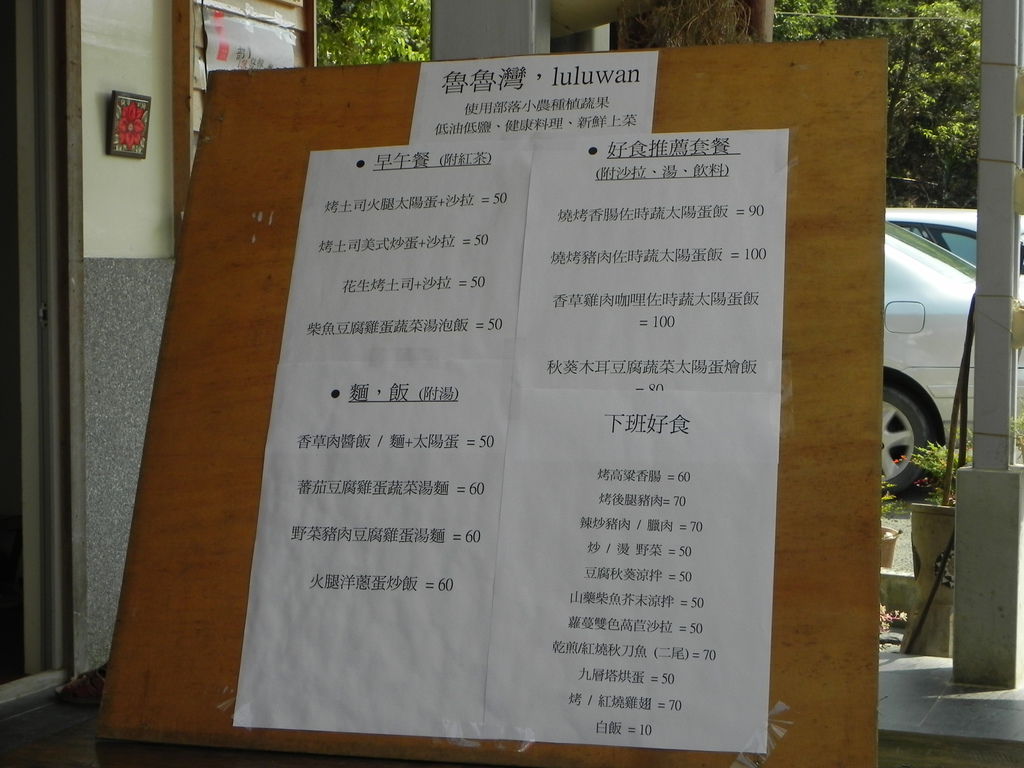 魯魯灣，luluwan
使用部落小農種植蔬果
低油低鹽、健康料理、新鮮上菜
● 早午餐 (附紅茶)
烤土司火腿太陽蛋+沙拉 = 50
烤土司美式炒蛋+沙拉 = 50
花生烤土司+沙拉 = 50
柴魚豆腐雞蛋蔬菜湯泡飯 = 50
● 麵，飯 (附湯)
香草肉醬飯 / 麵+太陽蛋 = 50
蕃茄豆腐雞蛋蔬菜湯麵 = 60
野菜豬肉豆腐雞蛋湯麵 = 60
火腿洋蔥蛋炒飯 = 60
● 好食推薦套餐
(附沙拉、湯、飲料)
燒烤香腸佐時蔬太陽蛋飯 = 90
燒烤豬肉佐時蔬太陽蛋飯 = 100
香草雞肉咖哩佐時蔬太陽蛋飯
= 100
秋葵木耳豆腐蔬菜太陽蛋燴飯
= 80
下班好食
烤高粱香腸 = 60
烤後腿豬肉= 70
辣炒豬肉 / 臘肉 = 70
炒 / 燙 野菜 = 50
豆腐秋葵涼拌 = 50
山藥柴魚芥末涼拌 = 50
蘿蔓雙色萵苣沙拉 = 50
乾煎/紅燒秋刀魚 (二尾) = 70
九層塔烘蛋 = 50
烤 / 紅燒雞翅 = 70
白飯 = 10